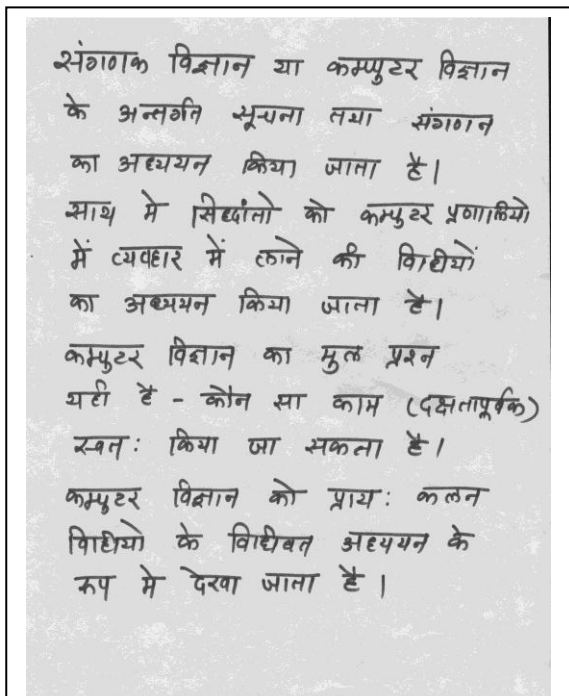 संगणक विज्ञान या कम्प्युटर विज्ञान
के अन्तर्गत सूचना तथा संगणन
का अध्ययन किया जाता है।
साथ मे सिध्दांतो को कम्प्युटर प्रणालियो
में व्यवहार में लाने की विधीयों
का अध्ययन किया जाता है।
कम्प्युटर विज्ञान का मुल प्रश्न
यही है - कौन सा काम (दक्षतापूर्वक)
स्वत: किया जा सकता है।
कम्प्युटर विज्ञान को प्राय: कलन
विधियो के विधीवत अध्ययन के
रूप मे देखा जाता है।